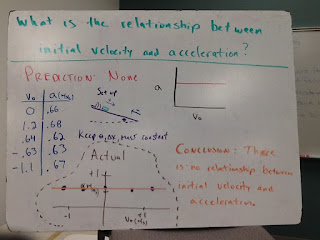 What is the relationship between
initial velocity and acceleration?
PREDICTION: None
a
V₀
V₀ a(m/s²)
0 .66
1.2 .68
.64 .62
-.63 .63
-1.1 .67
Set up
Keep θ, Δx, mass constant
Actual
+1
-1 +1
V₀ (m/s)
CONCLUSION: There
is no relationship between
initial velocity and
acceleration